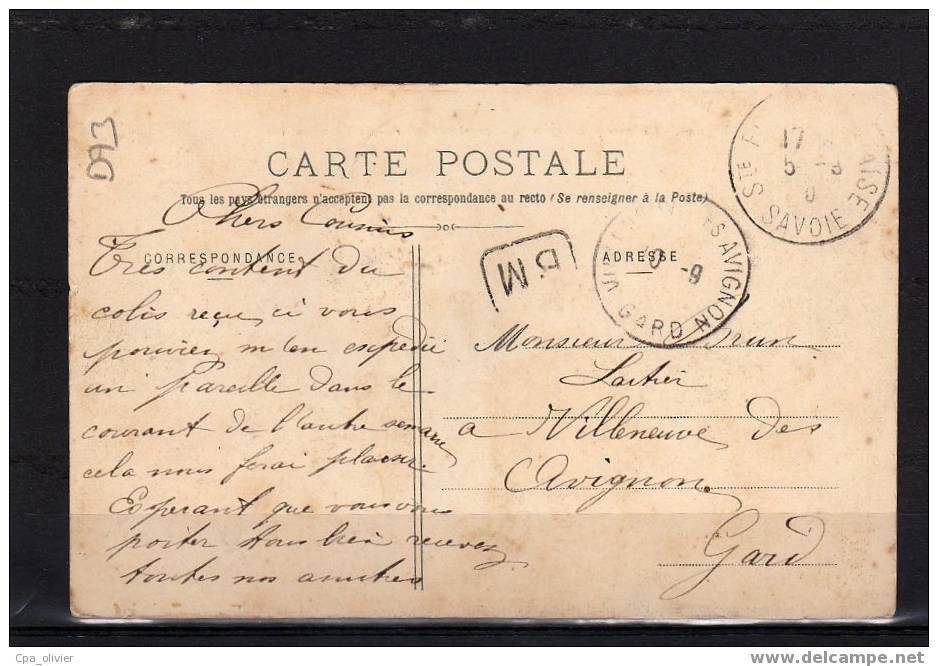 D73
CARTE POSTALE
Tous les pays étrangers n'acceptent pas la correspondance au recto (Se renseigner à la Poste)
Chers Cousins
CORRESPONDANCE
ADRESSE
BM
17
5 -9
0
STE F AISE
SAVOIE
S AVIGNON
-9
GARD
Très content du
colis reçu, si vous
pouviez m'en expédié
un pareille dans le
courant de l'autre semaine
cela nous ferai plaisir.
Esperant que vous vous
porter tous bien recevez
toutes nos amitiés
Monsieur Brun
Laitier
a Villeneuve des
Avignon.
Gard
Cpa_olivier
www.delcampe.net